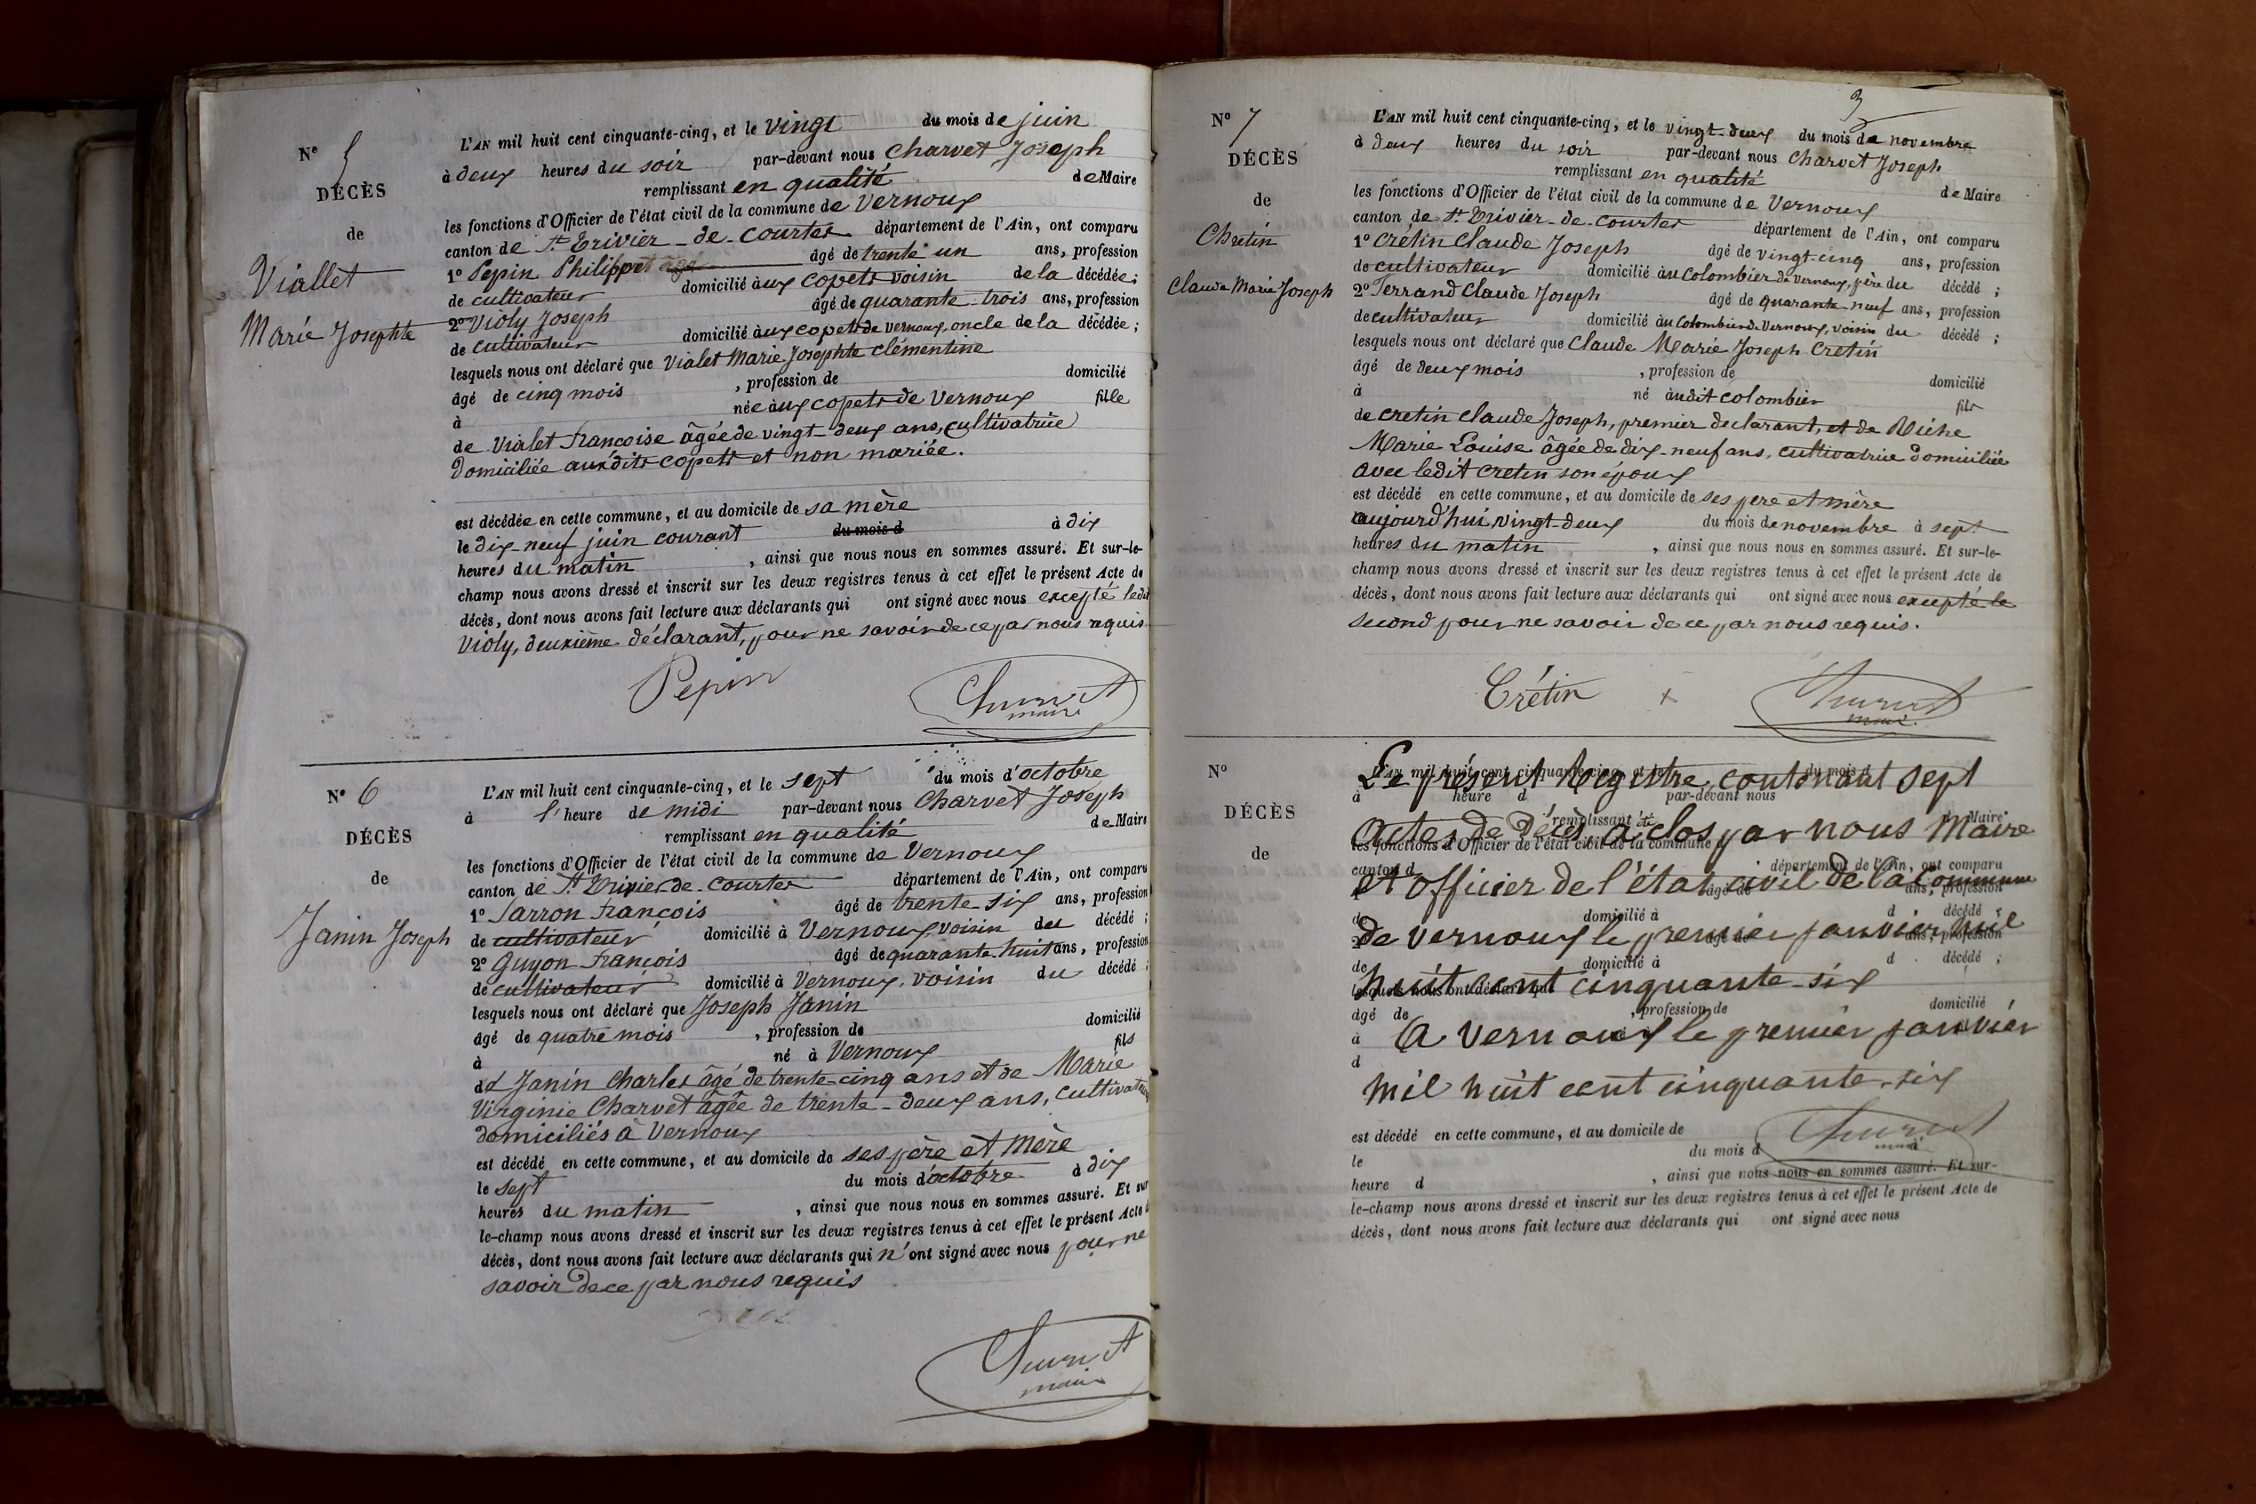 N° 5
DÉCÈS
de
Viallet
Marie Josephte
L'AN mil huit cent cinquante-cinq, et le vingt du mois de juin
à deux heures du soir par-devant nous Charvet Joseph
remplissant en qualité de Maire
les fonctions d'Officier de l'état civil de la commune de Vernoux
canton de St Trivier-de-Courtes département de l'Ain, ont comparu
1° Pepin Philippe âgé de trente un ans, profession
de cultivateur domicilié aux copets voisin de la décédée;
2° Violy Joseph âgé de quarante-trois ans, profession
de cultivateur domicilié aux copets de Vernoux, oncle de la décédée;
lesquels nous ont déclaré que Vialet Marie Josephte clémentine
âgé de cinq mois , profession de domicilié
à née aux copets de Vernoux fille
de Vialet Francoise âgée de vingt-deux ans, cultivatrice
domiciliée aux dits copets et non mariée.
est décédée en cette commune, et au domicile de sa mère
le dix-neuf juin courant du mois d à dix
heures du matin , ainsi que nous nous en sommes assuré. Et sur-le-
champ nous avons dressé et inscrit sur les deux registres tenus à cet effet le présent Acte de
décès, dont nous avons fait lecture aux déclarants qui ont signé avec nous excepté ledit
Violy, deuxième déclarant, pour ne savoir de ce par nous requis.
Pepin Charvet
maire
N° 6
DÉCÈS
de
Janin Joseph
L'AN mil huit cent cinquante-cinq, et le sept du mois d'octobre
à l'heure de midi par-devant nous Charvet Joseph
remplissant en qualité de Maire
les fonctions d'Officier de l'état civil de la commune de Vernoux
canton de St Trivier-de-Courtes département de l'Ain, ont comparu
1° Sarron François âgé de trente-six ans, profession
de cultivateur domicilié à Vernoux, voisin du décédé;
2° Guyon François âgé de quarante-huit ans, profession
de cultivateur domicilié à Vernoux, voisin du décédé;
lesquels nous ont déclaré que Joseph Janin
âgé de quatre mois , profession de domicilié
à né à Vernoux fils
de Janin Charles âgé de trente-cinq ans et de Marie
Virginie Charvet âgée de trente-deux ans, cultivateurs
domiciliés à Vernoux
est décédé en cette commune, et au domicile de ses père et mère
le sept du mois d'octobre à dix
heures du matin , ainsi que nous nous en sommes assuré. Et sur
le-champ nous avons dressé et inscrit sur les deux registres tenus à cet effet le présent Acte
décès, dont nous avons fait lecture aux déclarants qui n'ont signé avec nous pour ne
savoir de ce par nous requis
Charvet
maire
3
N° 7
DÉCÈS
de
Chretin
Claude Marie Joseph
L'AN mil huit cent cinquante-cinq, et le vingt-deux du mois de novembre
à deux heures du soir par-devant nous Charvet Joseph
remplissant en qualité de Maire
les fonctions d'Officier de l'état civil de la commune de Vernoux
canton de St Trivier-de-Courtes département de l'Ain, ont comparu
1° Crétin Claude Joseph âgé de vingt-cinq ans, profession
de cultivateur domicilié au Colombier de Vernoux, père du décédé;
2° Ferrand Claude Joseph âgé de quarante-neuf ans, profession
de cultivateur domicilié au Colombier de Vernoux, voisin du décédé;
lesquels nous ont déclaré que Claude Marie Joseph Cretin
âgé de deux mois , profession de domicilié
à né audit colombier fils
de cretin Claude Joseph, premier déclarant, et de Riche
Marie Louise âgée de dix-neuf ans, cultivatrice domiciliée
avec ledit cretin son époux
est décédé en cette commune, et au domicile de ses père et mère
aujourd'hui vingt-deux du mois de novembre à sept
heures du matin , ainsi que nous nous en sommes assuré. Et sur-le-
champ nous avons dressé et inscrit sur les deux registres tenus à cet effet le présent Acte de
décès, dont nous avons fait lecture aux déclarants qui ont signé avec nous excepté le
second pour ne savoir de ce par nous requis.
Crétin Charvet
maire
N°
DÉCÈS
de
Le présent Registre, contenant sept
Actes de Décès, a été clos par nous Maire
et officier de l'état civil de la Commune
de Vernoux le premier janvier mil
huit cent cinquante-six
A Vernoux le premier janvier
mil huit cent cinquante-six
Charvet
maire
est décédé en cette commune, et au domicile de
le du mois d
heure d , ainsi que nous nous en sommes assuré. Et sur-
le-champ nous avons dressé et inscrit sur les deux registres tenus à cet effet le présent Acte de
décès, dont nous avons fait lecture aux déclarants qui ont signé avec nous